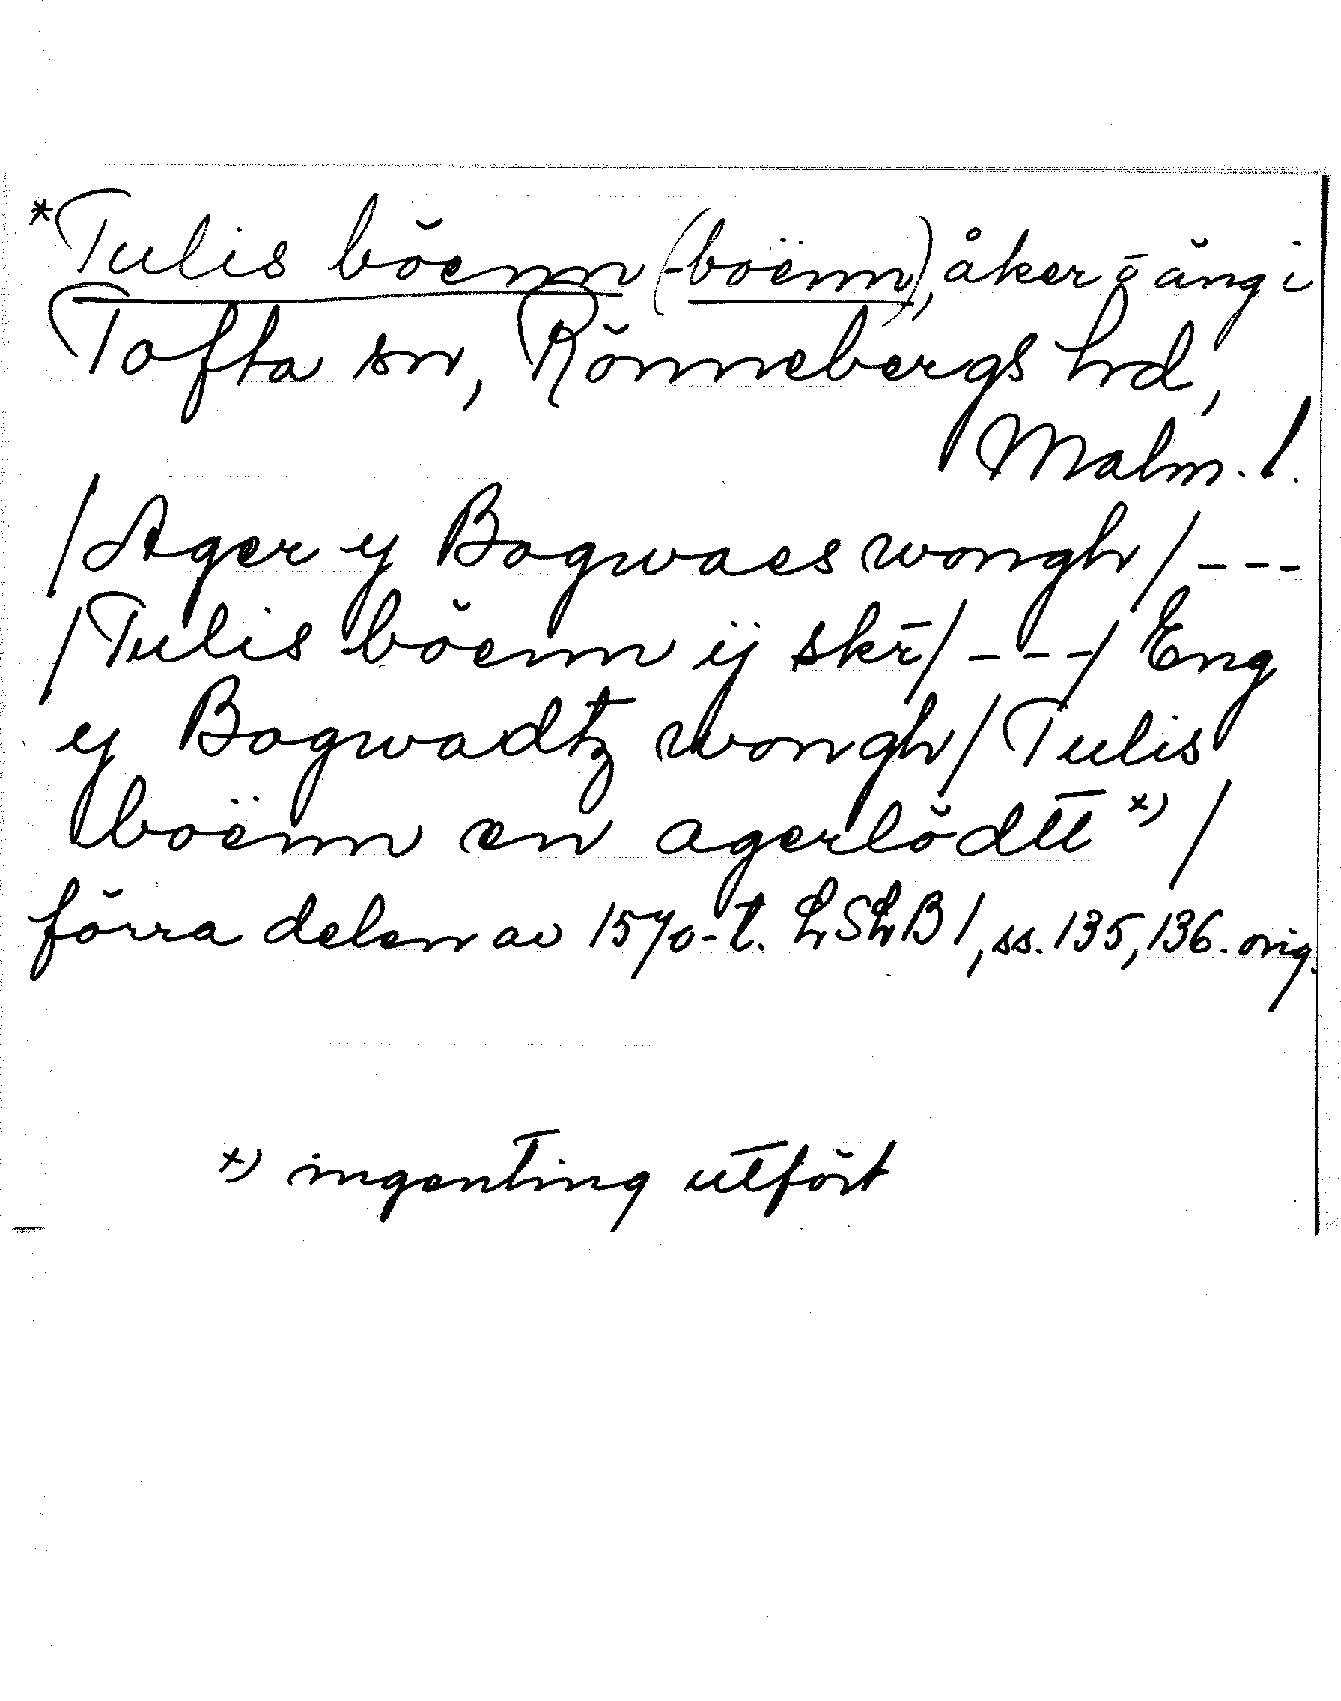 *Tulis böenn (-boënn), åker o äng i
Tofta sn, Rönnebergs hd,
Malm. l.
/Ager y Bogwaes wongh/ ---
/Tulis böenn ij skr̄/ ---/ Eng
y Bogwadtz wongh/ Tulis
boënn en agerlödtt *) /
förra delen av 1570-t. LSLB 1, ss. 135, 136. orig.
*) ingenting utfört